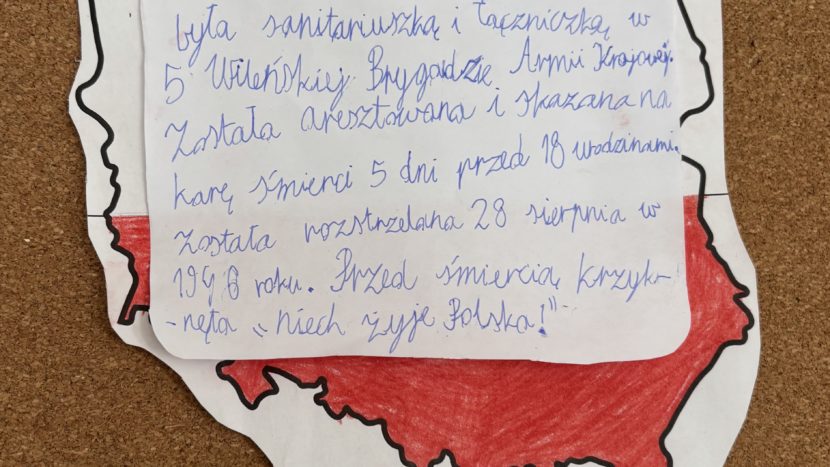 była sanitariuszką i łączniczką w
5 Wileńskiej Brygadzie Armii Krajowej.
Została aresztowana i skazana na
karę śmierci 5 dni przed 18 urodzinami.
Została rozstrzelana 28 sierpnia w
1946 roku. Przed śmiercią krzyk-
-nęła „niech żyje Polska!”